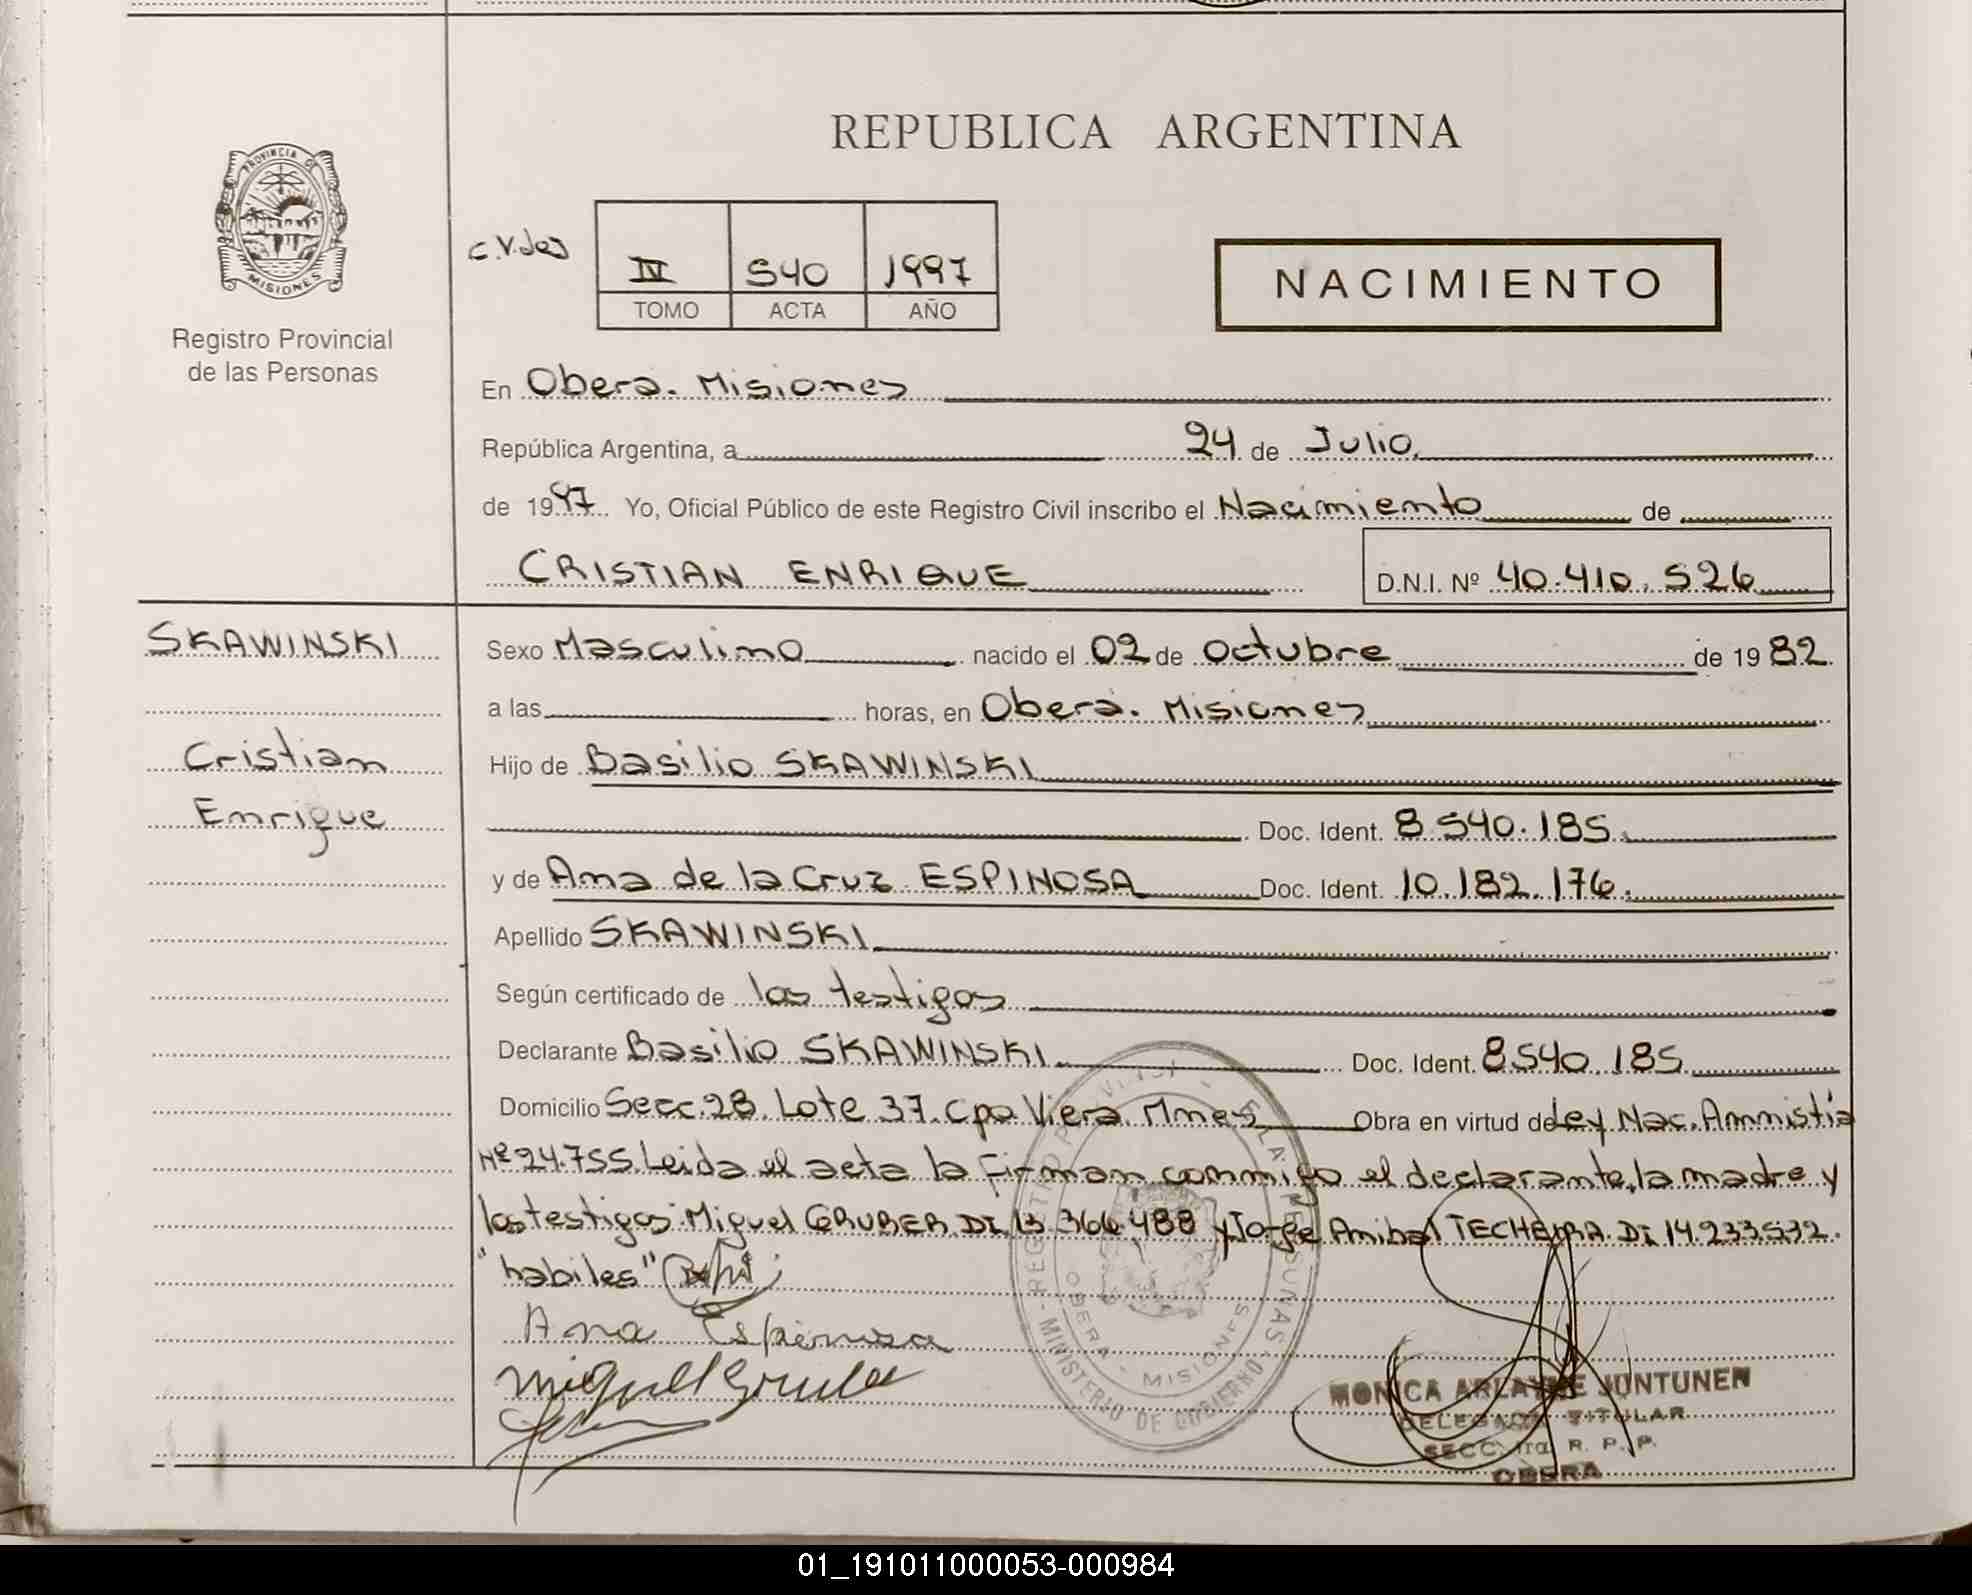 REPUBLICA ARGENTINA
PROVINCIA DE
MISIONES
Registro Provincial
de las Personas
IV 540 1997
TOMO ACTA AÑO
NACIMIENTO
En Obera. Misiones
República Argentina, a 24 de Julio
de 1997 Yo, Oficial Público de este Registro Civil inscribo el Nacimiento de
CRISTIAN ENRIQUE D.N.I. Nº 40.410.526
SKAWINSKI
Cristian
Enrique
Sexo Masculino nacido el 02 de Octubre de 1982
a las horas, en Oberá. Misiones
Hijo de Basilio SKAWINSKI
Doc. Ident. 8.540.185
y de Ana de la Cruz ESPINOSA Doc. Ident. 10.182.176.
Apellido SKAWINSKI
Según certificado de los testigos
Declarante Basilio SKAWINSKI Doc. Ident. 8.540.185
Domicilio Secc.28. Lote 37. Cpo Viera. Mnes Obra en virtud de Ley Nac. Amnistía
Nº 24.755. Leida el acta la firman conmigo el declarante, la madre y
los testigos: Miguel GRUBER. DI 13.366.488 y Jorge Anibal TECHEIRA. DI 14.233.532.
"habiles"
Ana Espinosa
Miguel Gruber
MINISTERIO DE GOBIERNO
OBERA - MISIONES
MONICA ARLAYNE JUNTUNEN
DELEGADA TITULAR
SECC. 1ra. R. P. P.
OBERA
01_191011000053-000984